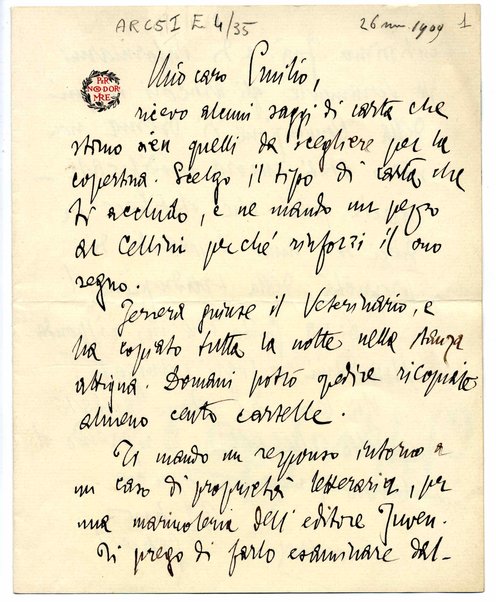 ARC5I E 4/35
26 nov 1909 1
PER
NON DOR
MIRE
Mio caro Emilio,
ricevo alcuni saggi di carta che
stimo sien quelli da scegliere per la
copertina. Scelgo il tipo di carta che
ti accludo, e ne mando un pezzo
al Cellini perché rinforzi il suo
segno.
Iersera giunse il Veterinario, e
ha copiato tutta la notte nella stanza
attigua. Domani potrò spedire ricopiate
almeno cento cartelle.
Ti mando un responso intorno a
un caso di proprietà letteraria, per
una marioleria dell'editore Juven.
Ti prego di farlo esaminare dal-